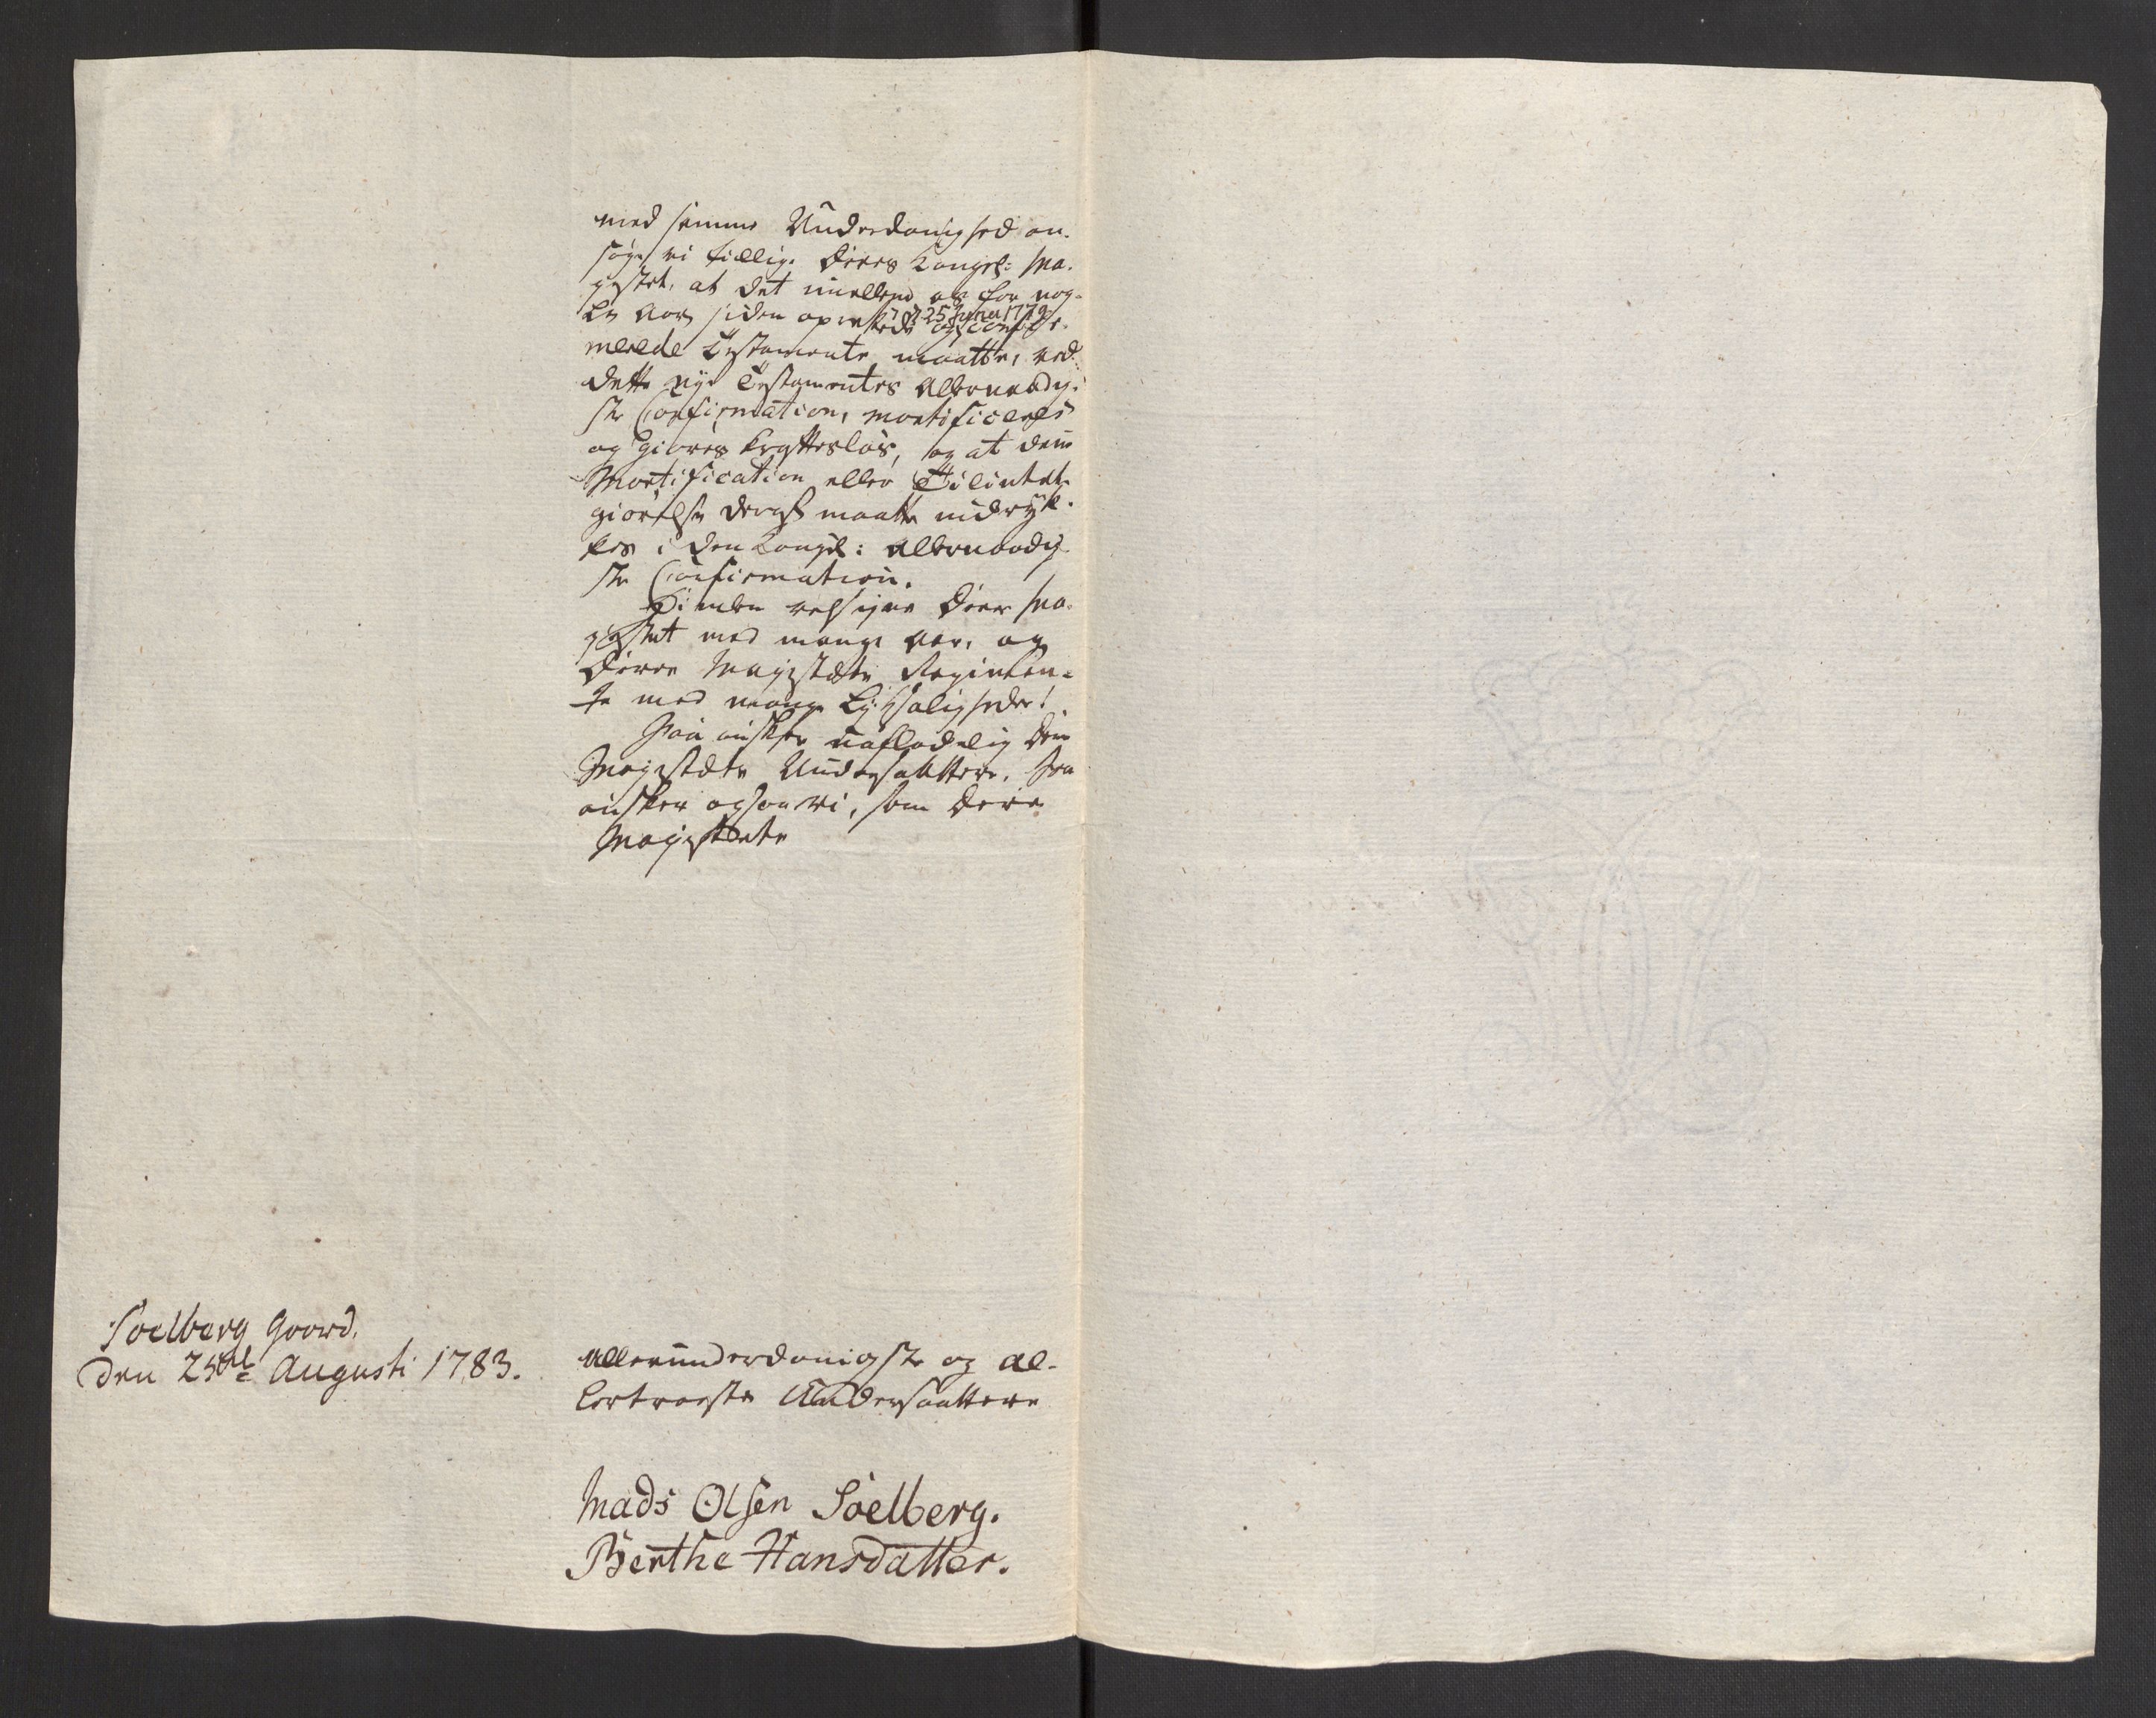 med samme Underdanighed an-
søge vi tillige Deres Kongel: Ma-
jestet, at det imellem os for nog-
le Aar siden oprettede og confir-
d 25 Junii 1779
merede Testamente maatte, ved
dette nye Testamentes Allernaadig-
ste Confirmation, mortificeres
og giøres kraftesløs, og at den
Mortification eller Tilintet-
giørelse derhos maatte indryk-
kes i den Kongel: Allernaadig-
ste Confirmation.
Himlen velsigne Deres Ma-
jestet med mange Aar, og
Deres Majestæts Regimen-
te med mange Lyksaligheder!
Saa ønsker uafladelig Deres
Majestæts Undersaattere, saa
ønsker ogsaa vi, som Deres
Majestæts
Soelberg Gaard,
den 25de Augusti 1783.
allerunderdanigste og al-
lertroeste Undersaattere
Mads Olsen Soelberg.
Berthe Hansdatter.